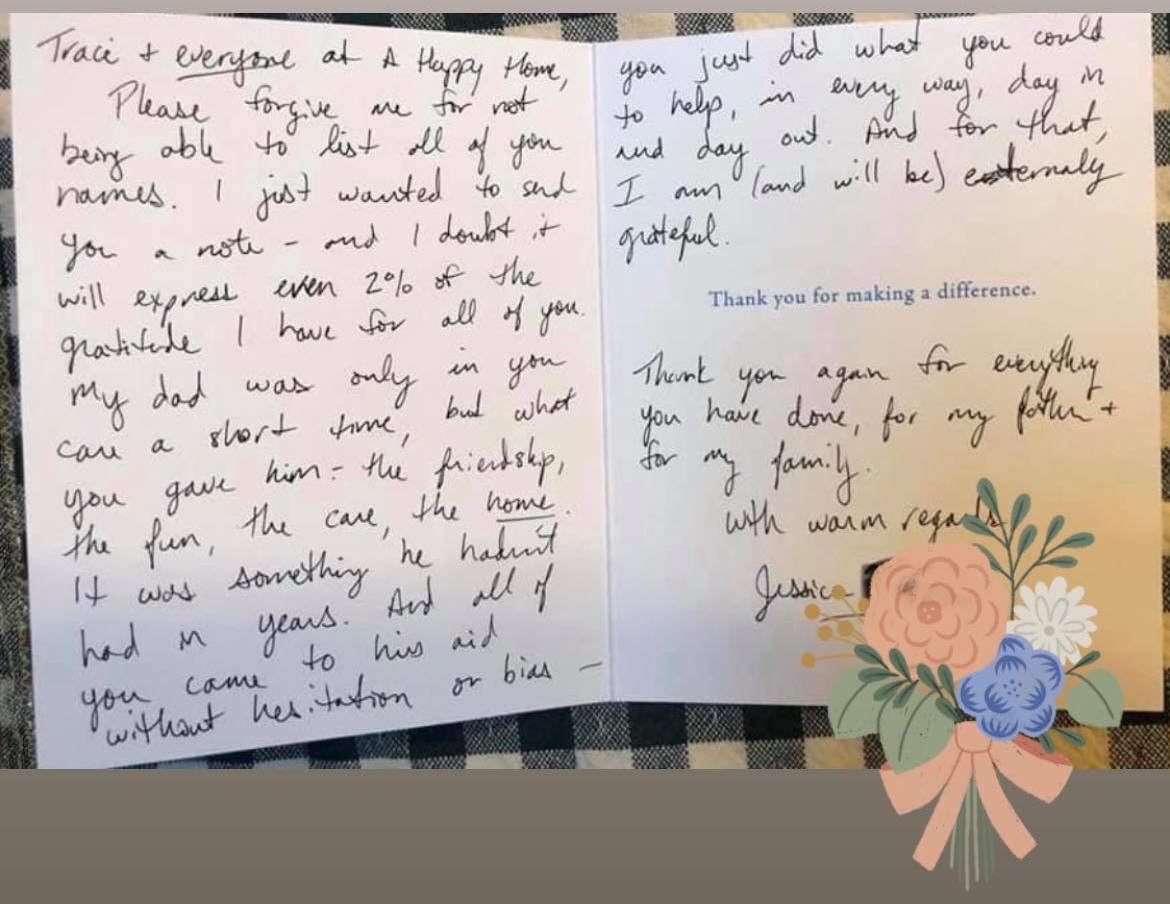 Traci + everyone at A Happy Home,
Please forgive me for not
being able to list all of you
names. I just wanted to send
you a note - and I doubt it
will express even 2% of the
gratitude I have for all of you.
My dad was only in you
care a short time, but what
you gave him - the friendship,
the fun, the care, the home.
It was something he hadn't
had in years. And all of
you came to his aid
without hesitation or bias -
you just did what you could
to help, in every way, day in
and day out. And for that,
I am (and will be) eternaly
grateful.
Thank you for making a difference.
Thank you again for everything
you have done, for my father +
for my family.
with warm regards
Jessica